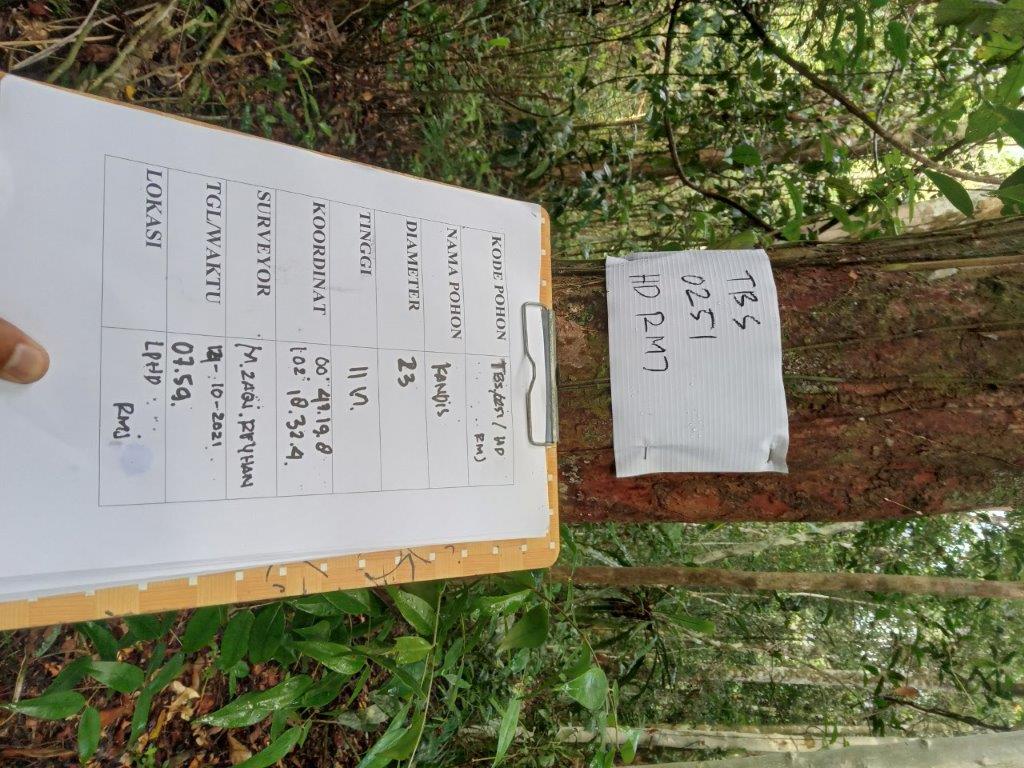 TBS
0251
HD RMJ
KODE POHON TBS/0251/HD
RMJ
NAMA POHON KANDIS
DIAMETER 23
TINGGI 11 M.
KOORDINAT 00° 49.19.8
102° 18.32.4.
SURVEYOR M. ZAQI. REYHAN
TGL/WAKTU -10-2021
07.59.
LOKASI LPHD
RMJ